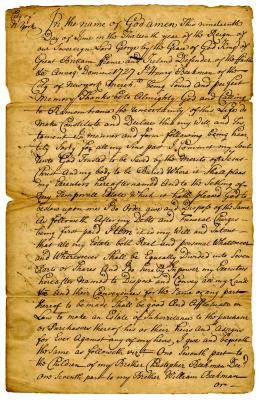 In the name of God amen This nineteenth
Day of June in the Thirteenth year of the Reign of
our Sovereign Lord George by the Grace of God King of
Great Britain France and Ireland Defender of the faith
Annoq Domini 1727 I Henry Beekman of the
City of Being Sound and perfect
Memory Thanks be to Almighty God and Calling
to Remembrance the uncertainty of this Life do
make Constitute and Declare this my Will and
in manner and form following being
Sorry for all my Sins past
God Trusted to be Saved by the Merits of Jesus
Christ And my body to be Buried Where it Shall please
my Executors hereafter named And to the Setling of
my Temporall Estate Which it hath pleased God to
bestow upon me I do Order Give and Dispose of the Same
As followeth After my Debts and Funeral Charges
being first paid Item it is my Will and
that all my Estate both Real and personal Whatsoever
and Wheresoever Shall be Equally Divided into Seven
parts or Shares And I do hereby Impower my Executors
hereafter named to Dispose and Convey all my
and their Conveyance for the Same or any part
thereof to be made Shall be Good And Effectuall in
Law to make an Estate of Inheritance to the purchaser
or Purchasers thereof his or their Heirs and Assigns
for Ever Against any of my heirs, I give and bequeath
the Same as followeth One Seventh part
the Children of my Brother Christopher
One Seventh part to my Brother William
or